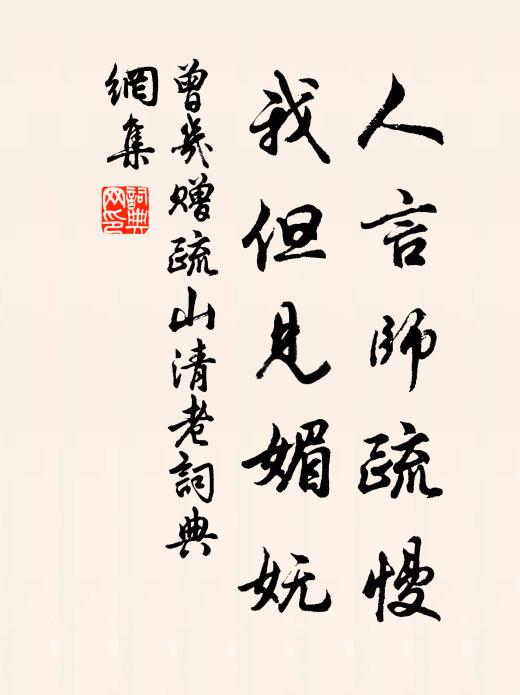 人言師疏慢
我但見媚妩
曾幾贈疏山清老詞典
網集
詞典
网印